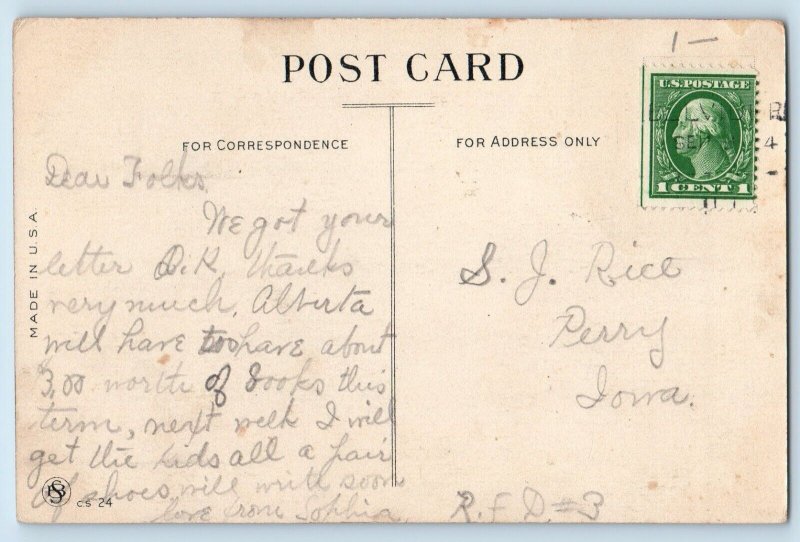 1 —
POST CARD
FOR CORRESPONDENCE
FOR ADDRESS ONLY
U.S. POSTAGE
1 CENT 1
SEP 4
MADE IN U.S.A.
Dear Folks
We got your
letter O.K. thanks
very much, Alberta
will have to have about
3.00 worth of books this
term, next week I will
get the kids all a pair
of shoes will write soon
love from Sophia
S. J. Rice
Perry
Iowa.
R.F.D #3
C.S 24